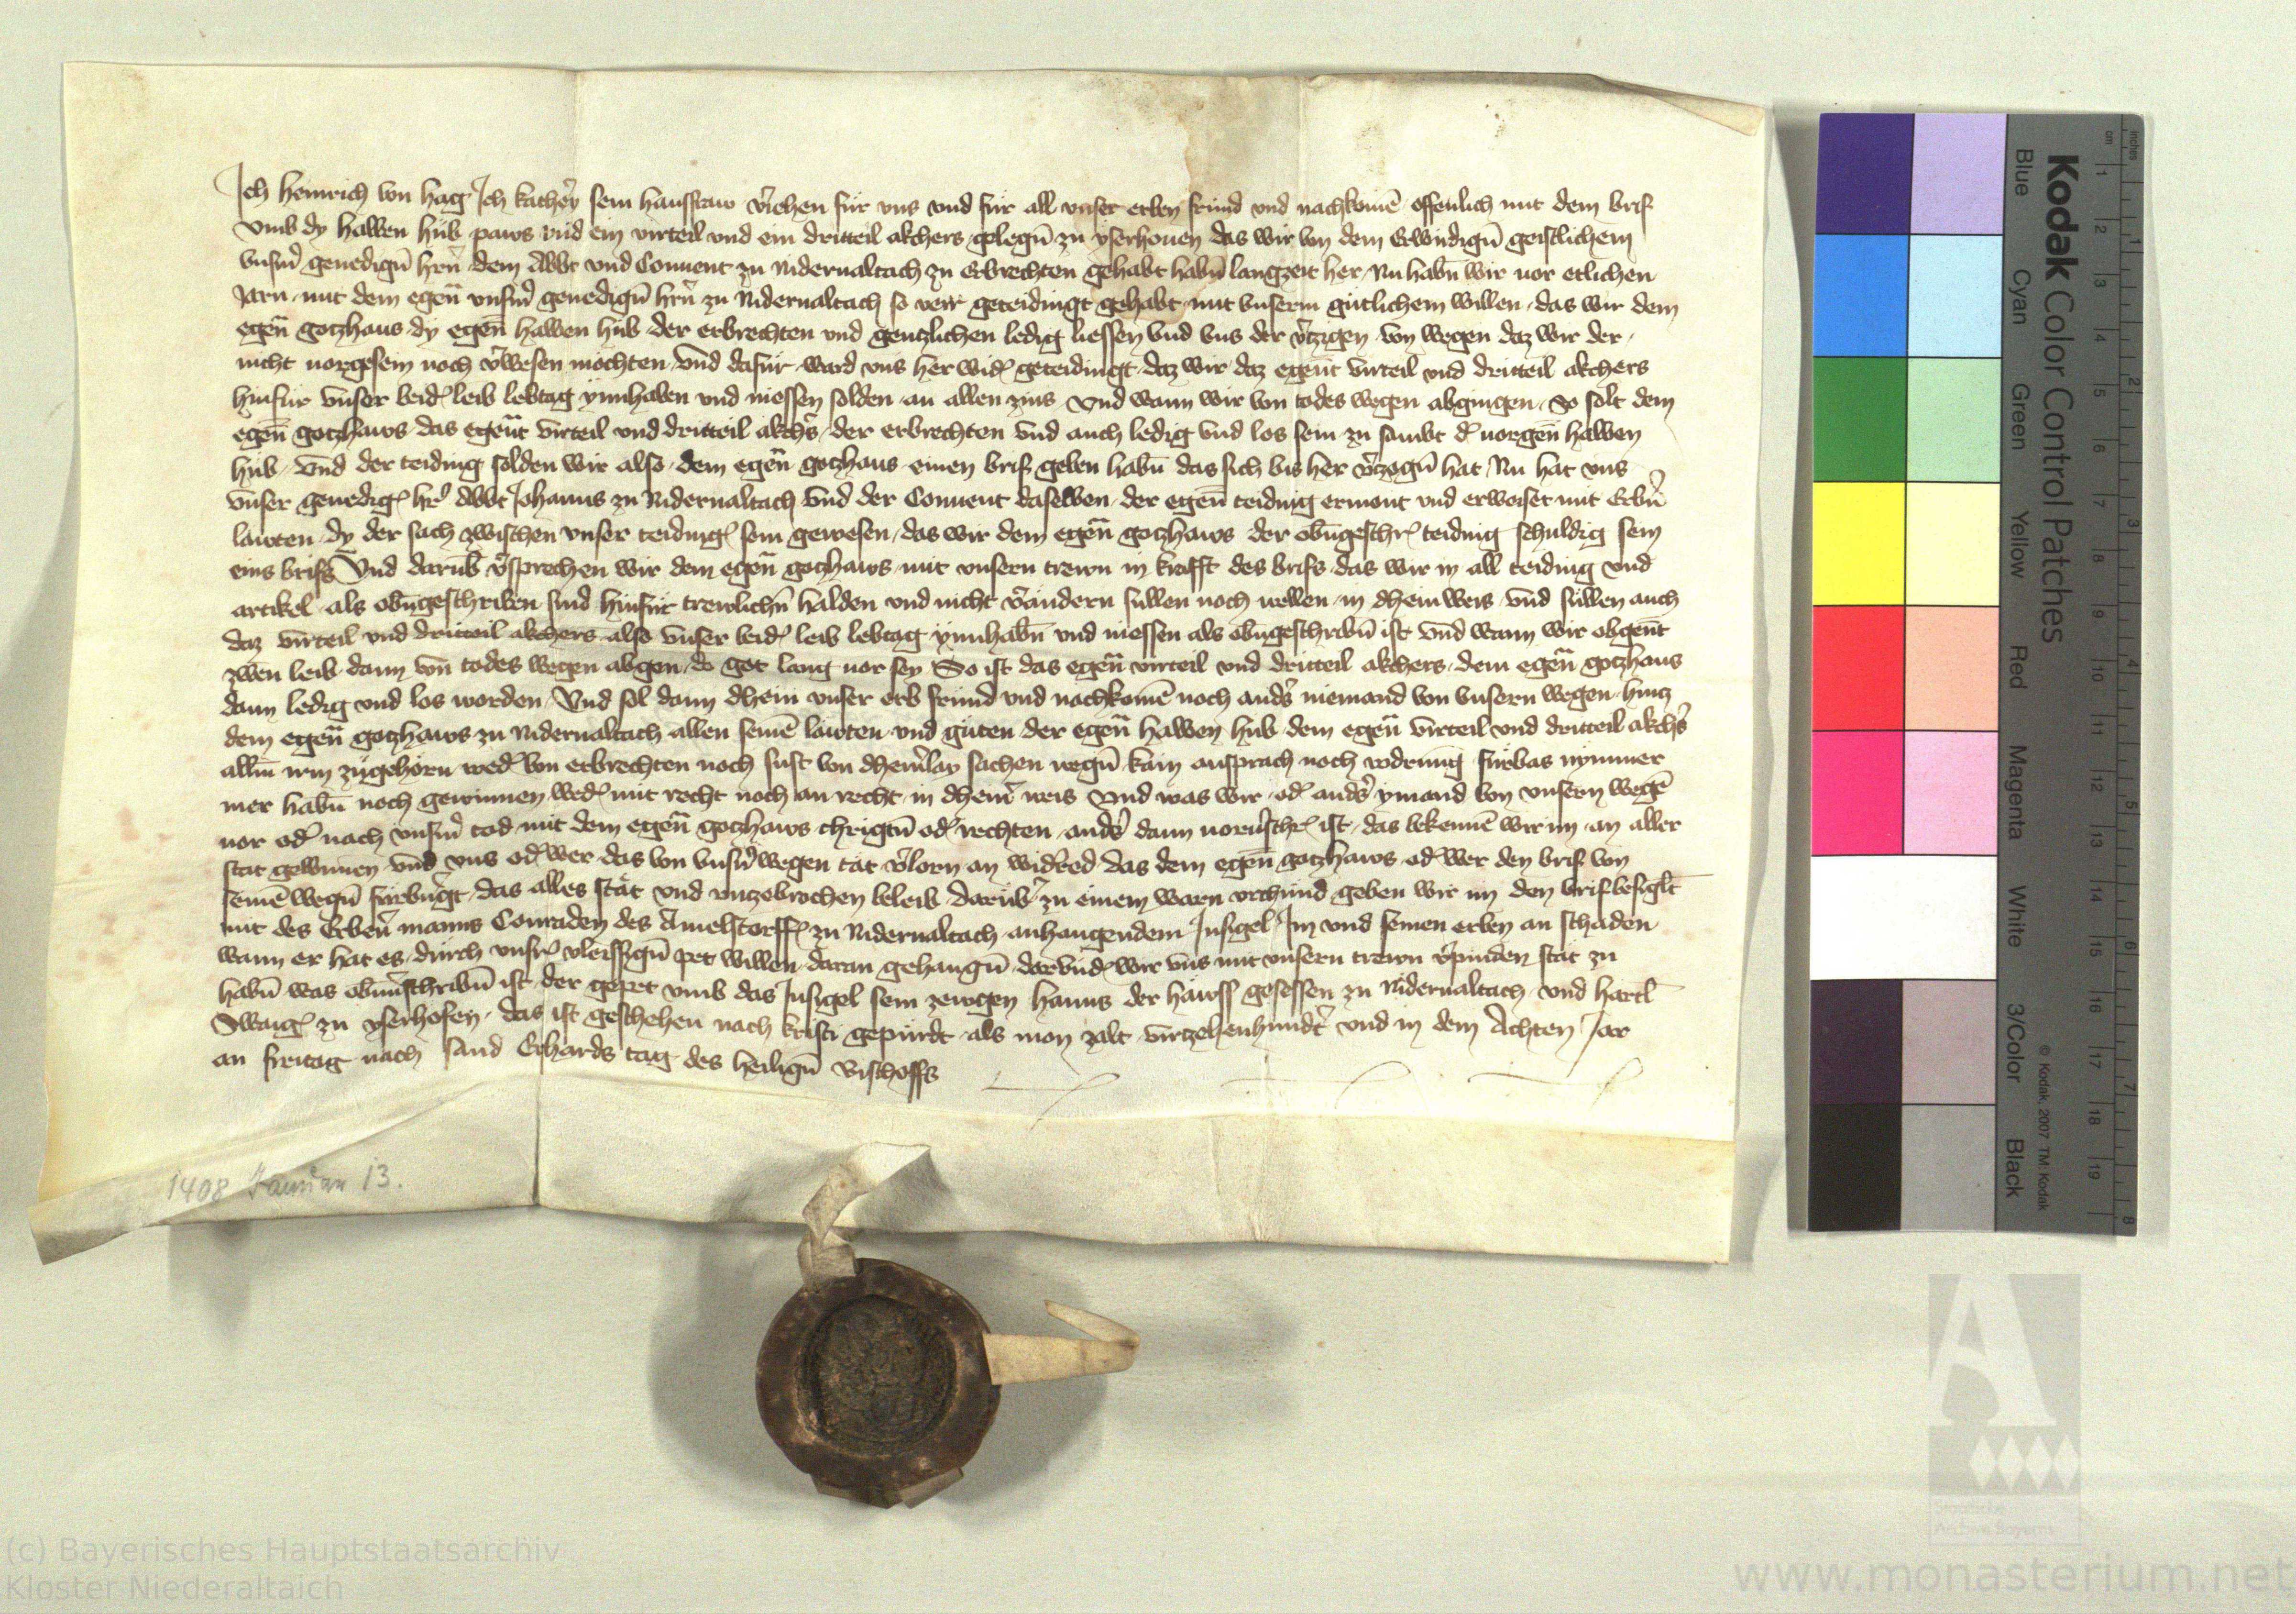 Ich Heinrich von Hag Ich kather sein hausfraw v̾iehen für vns vnd für all vnser erben fründ vnd nachkomē offenlich mit dem brif
vmb dy halben hüb paws vnd ein virteil vnd ein dritteil akchers gelegn̄ zu yserhouen das wir von dem Erwirdign̄ geistlichem
vnsm̄ genedign̄ hrn̄ dem Abbt vnd Conuent zu Nidernaltach zu Erbrechten gehabt habn̄ langzeit her Nu habn̄ wir vor etlichen
Jarn mit dem egen̄ vnsm̄ genedign̄ hrn̄ zu Nidernaltach so verr geteidingt gehabt mit vnserm gütlichem willen das wir dem
egen̄ gotzhaus dy egen̄ halben hüb der erbrechten vnd gentzlichen ledig liessen vnd vns der v̾tzigen von wegen daz wir der
nicht vorgesein noch v̾wesen mochten vnd dafür ward vns her wid̾ geteidingt daz wir daz egen̄t virteil vnd dritteil akchers
hinfür vnser beid̾ leib lebtag ynnhaben vnd niessen solden an allen zins vnd wann wir von todes wegen abgingen so solt dem
egen̄ gotzhaws das egen̄t virteil vnd dritteil akch̾s der erbrechten vnd auch ledig vnd los sein zu sambt d̾ uorgen̄ halben
hüb vnd der teiding solden wir also dem egen̄ gotzhaus einen brif geben habn̄ das sich bis her v̾zogn̄ hat Nu hat vns
vnser genedig̾ hr̾ Abbt Johanns zu Nidernaltach vnd der Conuent daselben der egen̄ teiding ermont vnd erweiset mit Erbn̄
lawten dy der sach zwischen vnser teiding̾ sein gewesen das wir dem egen̄ gotzhaws der obn̄geschr̾ teiding schuldig sein
eins brifs Vnd darūb v̾sprechen wir dem egen̄ gotzhaws mit vnsern trewn in krafft des brifs das wir in all teiding vnd
artikel als obn̄geschriben sind hinfür trewlichn̄ halden vnd nicht v̾andern süllen noch wellen in dhein weis vnd süllen auch
daz virteil vnd dritteil akchers also vnser beid̾ leib lebtag ynnhabn̄ vnd niessen als obn̄geschribn̄ ist vnd wann wir obgen̄t
zwen leib dann von todes wegen abgen do got lang uor sey So ist das egen̄ virteil vnd dritteil akchers dem egen̄ gotzhaus
dann ledig vnd los worden Vnd sol dann dhein vnser erb frund vnd nachkomē noch and̾s niemand von vnsern wegen hintz
dem egen̄ gotzhaws zu Nidernaltach allen seinē lawten vnd güten der egen̄ halben hüb dem egen̄ virteil vnd dritteil akch̾s
allm̄ irm zügehörn wed̾ von erbrechten noch sust von dheinerlay sachen wegn̄ kain ansprach noch vodrung fürbas nymmer
mer habn̄ noch gewinnen wed̾ mit recht noch an recht in dhein̾ weis Vnd was wir od̾ and̾s ymand von vnsern wegē
uor od̾ nach vnsm̄ tod mit dem egen̄ gotzhaws chrigtn̄ od̾ rechten and̾s dann uorūschr̾ ist das bekennē wir im an aller
stat gewunnen vnd vns od̾ wer das von vnsn̄ wegen tät v̾lorn an wid̾red das dem egen̄ gotzhaws od̾ wer den brif von
seinē wegn̄ fürbringt das alles stät vnd vnzebrochen beleib darüb̾ zu einem warn vrchünd geben wir im den brif besiglt
mit des Erbn̄ manns Conraden des Amelstorff̾ zu Nidernaltach anhangendem Insigel Im vnd seinen erben an schaden
wann er hat es durch vnsr̾ vleissign̄ pet willen daran gehangn̄ darvnd̾ wir vns mit vnsern trewn v̾pinden stät zu
habn̄ was obn̄uschribn̄ ist der gepet vmb das Insigel sein zewgen Hanns der Hawss gesessen zu Nidernaltach vnd Hartl
Swaig̾ zu yserhofen das ist geschehen nach kristi gepürdt als man zalt virzehenhundt̾ vnd in dem Achten Jar
an freitag nach sand Erhards tag des heilign̄ Bischoffs
1408 Januar 13.
Kodak Color Control Patches
Blue Cyan Green Yellow Red Magenta White 3/Color Black
© Kodak, 2007 TM: Kodak
cm 1 2 3 4 5 6 7 8 9 10 11 12 13 14 15 16 17 18 19
inches 1 2 3 4 5 6 7 8
(c) Bayerisches Hauptstaatsarchiv
Kloster Niederaltaich
www.monasterium.net